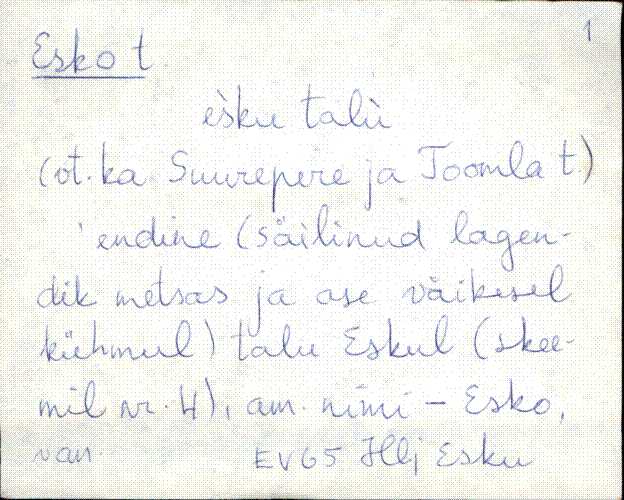 1
Esko t.
èsku talù
(vt. ka Suurepere ja Toomla t.)
'endine (säilinud lagen-
dik metsas ja ase väikesel
kühmul) talu Eskul (skee-
mil nr. 4), am. nimi – Esko,
van. EV65 Hlj Esku